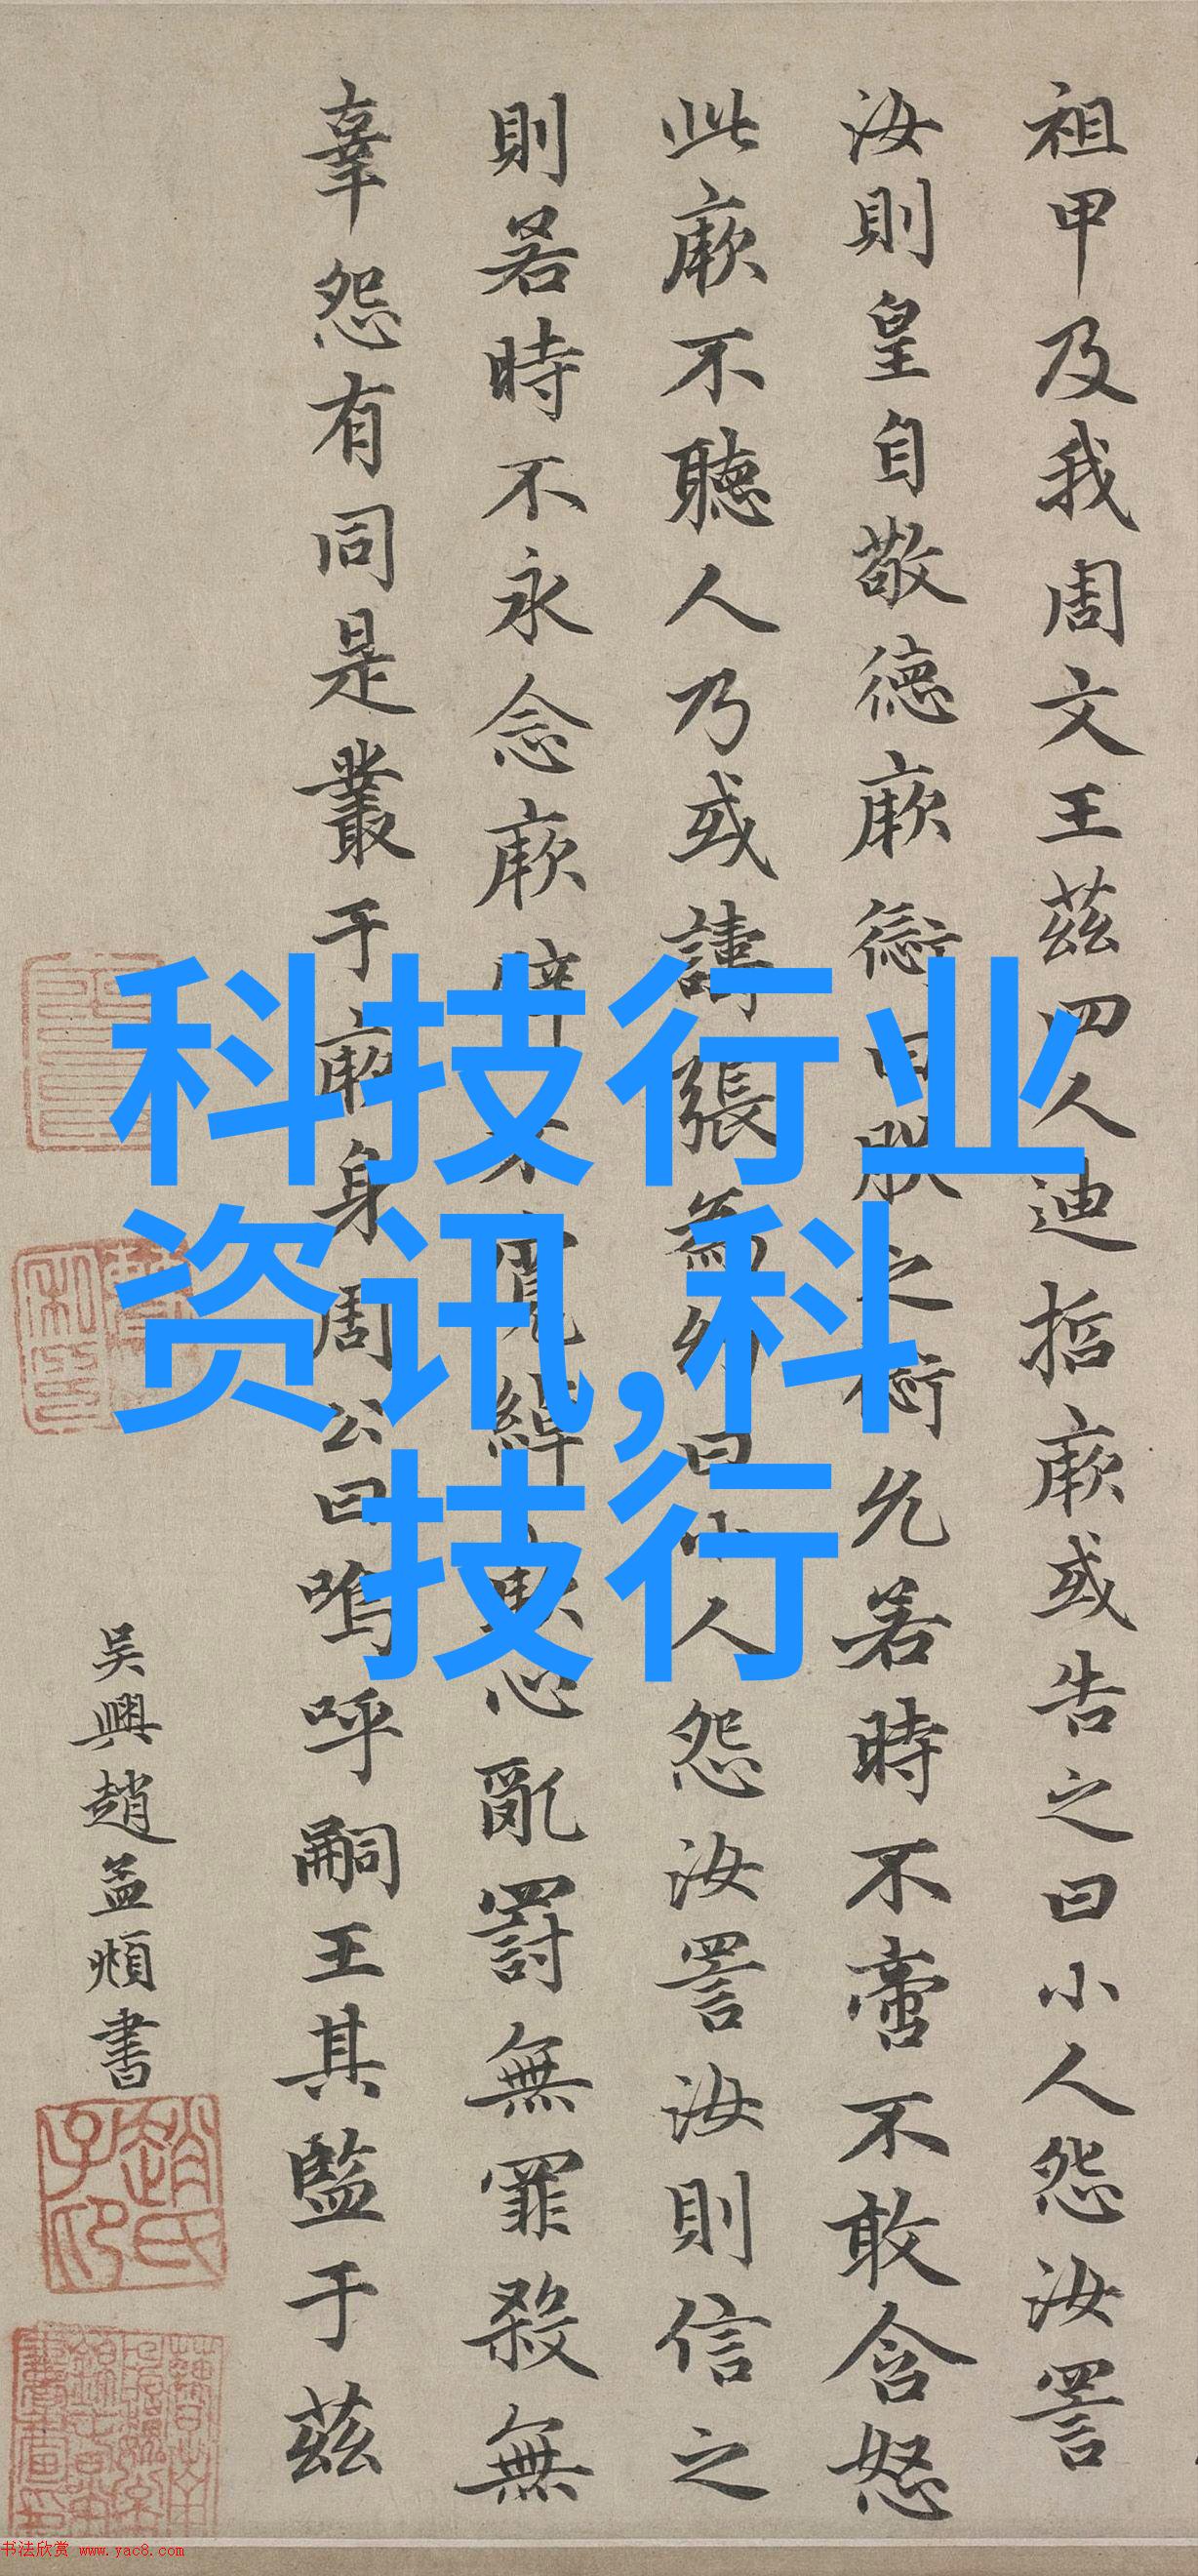 祖甲及我周文王茲四人迪哲厥或告之曰小人怨汝詈
汝則皇自敬德厥愆曰朕之愆允若時不啻不敢含怒
此厥不聽人乃或譸張為幻曰小人怨汝詈汝則信之
則若時不永念厥辟不寬綽厥心亂罰無罪殺無
辜怨有同是叢于厥身周公曰嗚呼嗣王其監于茲
吳興趙孟頫書
趙氏子昂
科技行业
资讯,科
技行
书法欣赏 www.yac8.com